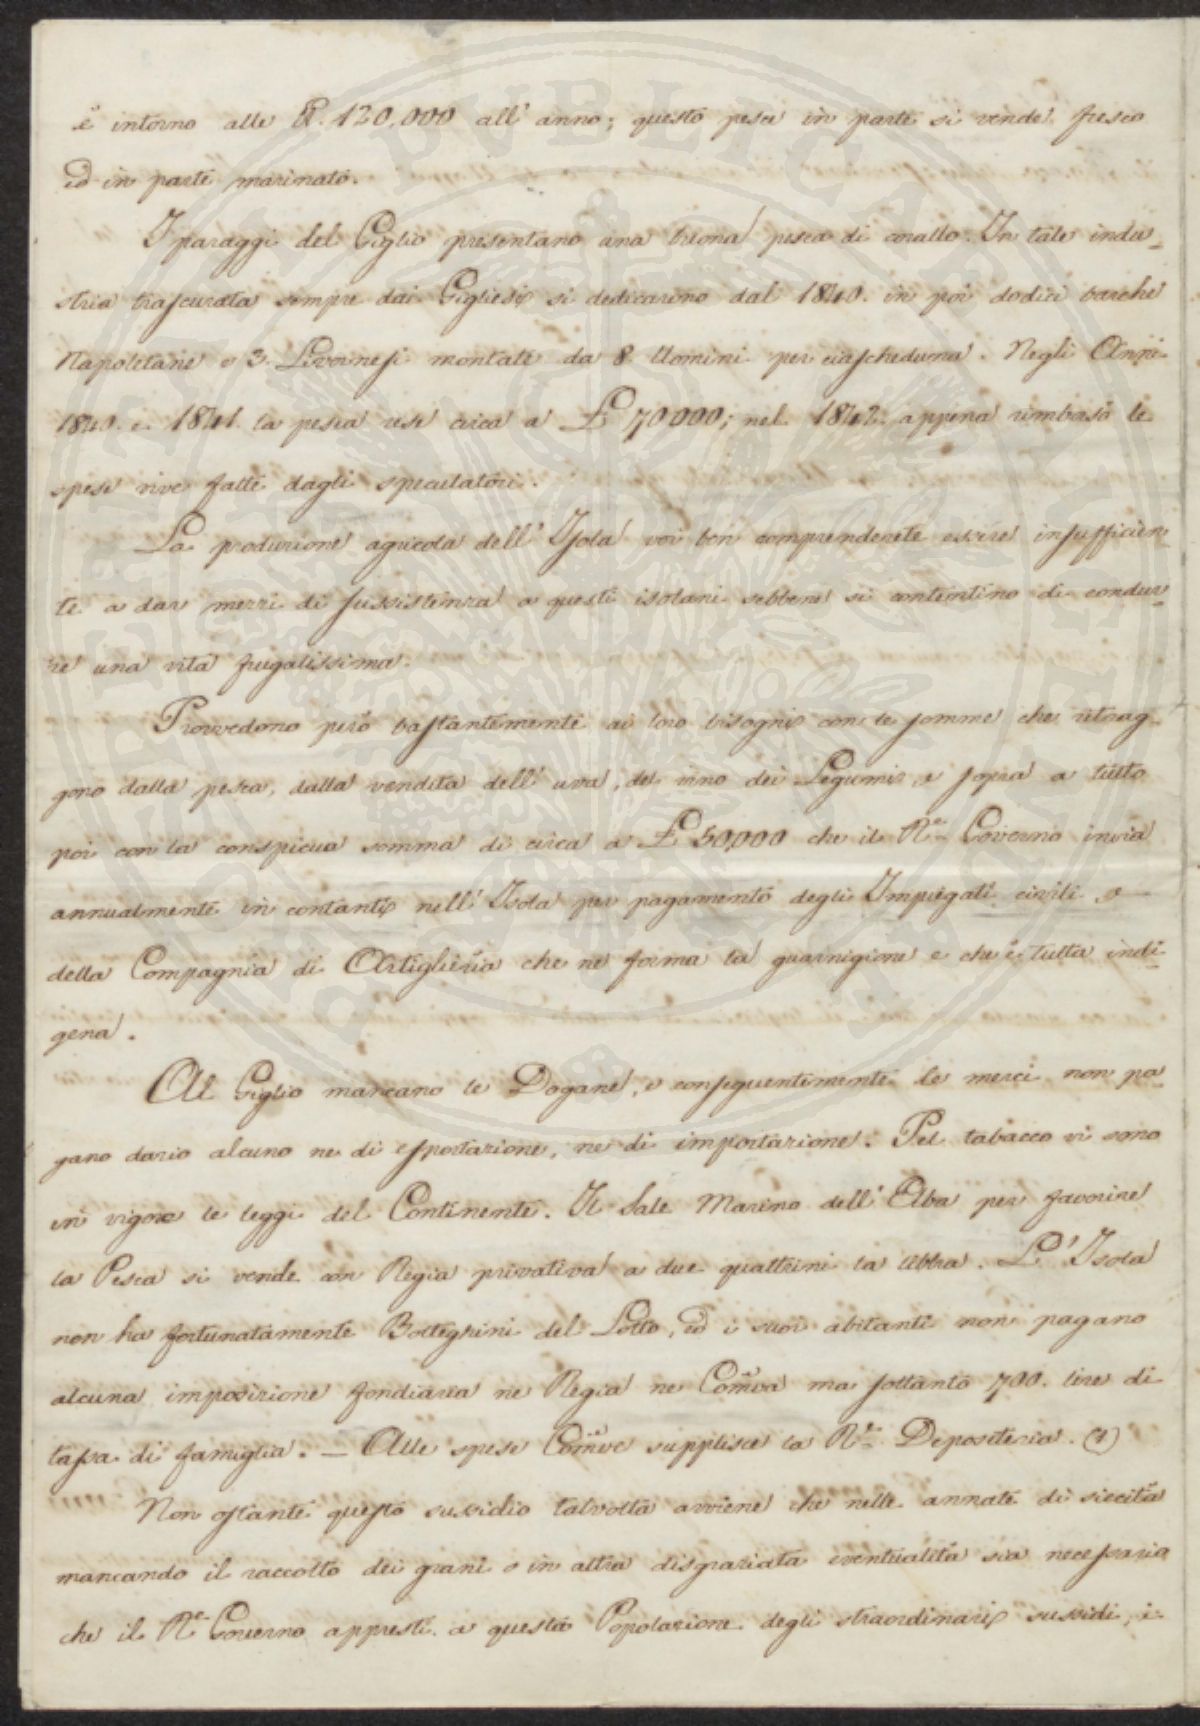 è intorno alle ₤. 120,000 all' anno; questo pesce in parte si vende fresco
ed in parte marinato.
I paraggi del Giglio presentano una buona pesca di corallo. In tale indu-
stria trascurata sempre dai Gigliesi si dedicarono dal 1840. in poi dodici barche
Napoletane e 3. Livornesi montate da 8. Uomini per ciascheduna. Negli Anni
1840. e 1841. la pesca rese circa a £ 70000; nel 1842. appena rimborsò le
spese vive fatte dagli speculatori.
La produzione agricola dell' Isola voi ben comprenderete essere insufficien-
te a dar mezzi di sussistenza a questi isolani sebbene si contentino di condur-
re una vita frugalissima.
Provvedono però bastantemente ai loro bisogni con le somme che ritrag-
gono dalla pesca, dalla vendita dell' uva, del vino dei Legumi, e sopra a tutto
poi con la conspicua somma di circa a £ 50,000 che il R.e Governo invia
annualmente in contanti nell' Isola per pagamento degli Impiegati civili e
della Compagnia di Artiglieria che ne forma la guarnigione e che è tutta indi-
gena.
Al Giglio mancano le Dogane, e conseguentemente le merci non pa-
gano dazio alcuno ne di esportazione, ne di importazione. Pel tabacco vi sono
in vigore le leggi del Continente. Il Sale Marino dell' Elba per favorire
la Pesca si vende con Regia privativa a due quattrini la libbra. L' Isola
non ha fortunatamente Botteghini del Lotto, ed i suoi abitanti non pagano
alcuna imposizione fondiaria ne Regia ne Com.va ma soltanto 700. lire di
tassa di famiglia. — Alle spese Com.ve supplisce la R.e Depositeria. (1)
Non ostante questo sussidio talvolta avviene che nelle annate di siccità
mancando il raccolto dei grani o in altra disgraziata eventualità sia necessario
che il R.e Governo appresti a questa Popolazione degli straordinari sussidi, i